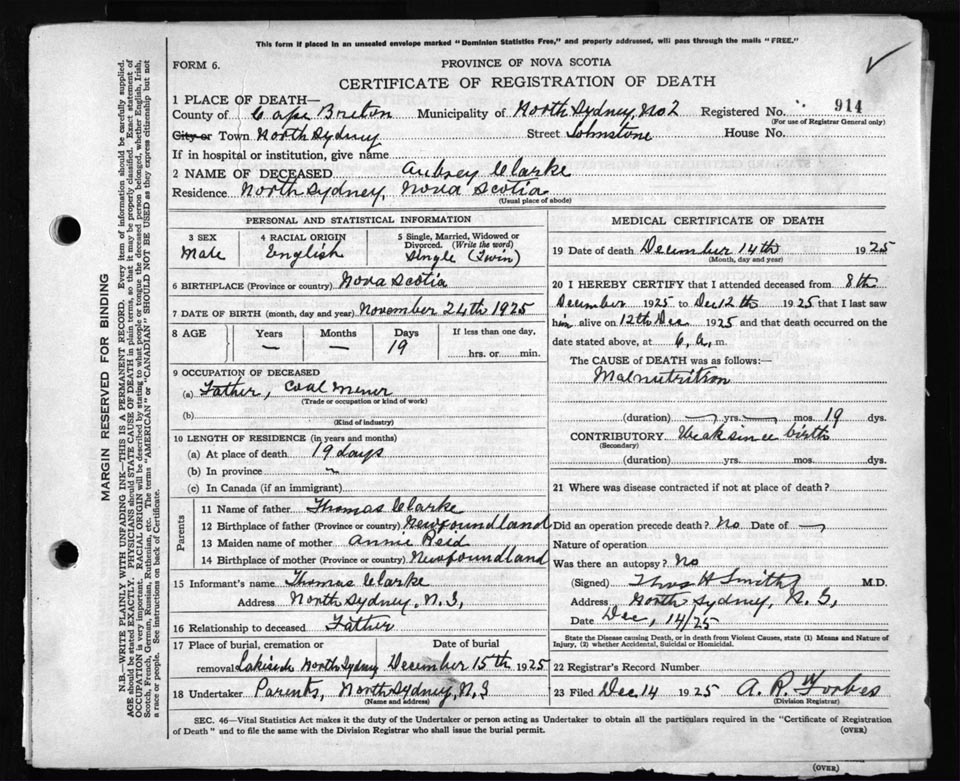 This form if placed in an unsealed envelope marked "Dominion Statistics Free," and properly addressed, will pass through the mails "FREE."
FORM 6.
PROVINCE OF NOVA SCOTIA
CERTIFICATE OF REGISTRATION OF DEATH
1 PLACE OF DEATH—
County of Cape Breton Municipality of North Sydney, No 2 Registered No. 914
(For use of Registrar General only)
City or Town North Sydney Street Johnstone House No.
If in hospital or institution, give name
2 NAME OF DECEASED Aubrey Clarke
Residence North Sydney, Nova Scotia
(Usual place of abode)
PERSONAL AND STATISTICAL INFORMATION
3 SEX Male
4 RACIAL ORIGIN English
5 Single, Married, Widowed or Divorced. (Write the word) Single (Twin)
6 BIRTHPLACE (Province or country) Nova Scotia
7 DATE OF BIRTH (month, day and year) November 24th 1925
8 AGE Years — Months — Days 19 If less than one day, hrs. or min.
9 OCCUPATION OF DECEASED
(a) Father, Coal Miner
(Trade or occupation or kind of work)
(b)
(Kind of industry)
10 LENGTH OF RESIDENCE (in years and months)
(a) At place of death 19 days
(b) In province "
(c) In Canada (if an immigrant)
Parents
11 Name of father Thomas Clarke
12 Birthplace of father (Province or country) Newfoundland
13 Maiden name of mother Annie Reid
14 Birthplace of mother (Province or country) Newfoundland
15 Informant's name Thomas Clarke
Address North Sydney, N.S,
16 Relationship to deceased Father
17 Place of burial, cremation or Date of burial
removal Lakeside North Sydney December 15th 1925
18 Undertaker Parents, North Sydney, N.S
(Name and address)
MEDICAL CERTIFICATE OF DEATH
19 Date of death December 14th 1925
(Month, day and year)
20 I HEREBY CERTIFY that I attended deceased from 8th
December 1925 to Dec 12th 1925 that I last saw
him alive on 12th Dec 1925 and that death occurred on the
date stated above, at 6 a, m.
The CAUSE of DEATH was as follows:—
Malnutrition
(duration) — yrs. — mos. 19 dys.
CONTRIBUTORY Weak since birth
(Secondary)
(duration) yrs. mos. dys.
21 Where was disease contracted if not at place of death?
Did an operation precede death? No Date of —
Nature of operation
Was there an autopsy? No
(Signed) Thos H Smith M.D.
Address North Sydney, N.S,
Date Dec, 14/25
State the Disease causing Death, or in death from Violent Causes, state (1) Means and Nature of
Injury, (2) whether Accidental, Suicidal or Homicidal.
22 Registrar's Record Number
23 Filed Dec 14 1925 A. R. Forbes
(Division Registrar)
SEC. 46—Vital Statistics Act makes it the duty of the Undertaker or person acting as Undertaker to obtain all the particulars required in the "Certificate of Registration
of Death" and to file the same with the Division Registrar who shall issue the burial permit. (OVER)
(OVER)
MARGIN RESERVED FOR BINDING
N.B.—WRITE PLAINLY WITH UNFADING INK—THIS IS A PERMANENT RECORD. Every item of information should be carefully supplied.
AGE should be stated EXACTLY. PHYSICIANS should STATE CAUSE OF DEATH in plain terms, so that it may be properly classified. Exact statement of
OCCUPATION is very important. RACIAL ORIGIN will be described by stating to what people or tongue the deceased person belonged, whether English, Irish,
Scotch, French, German, Russian, Ruthenian, etc. The terms "AMERICAN" or "CANADIAN" SHOULD NOT BE USED as they express citizenship but not
a race or people. See instructions on back of Certificate.